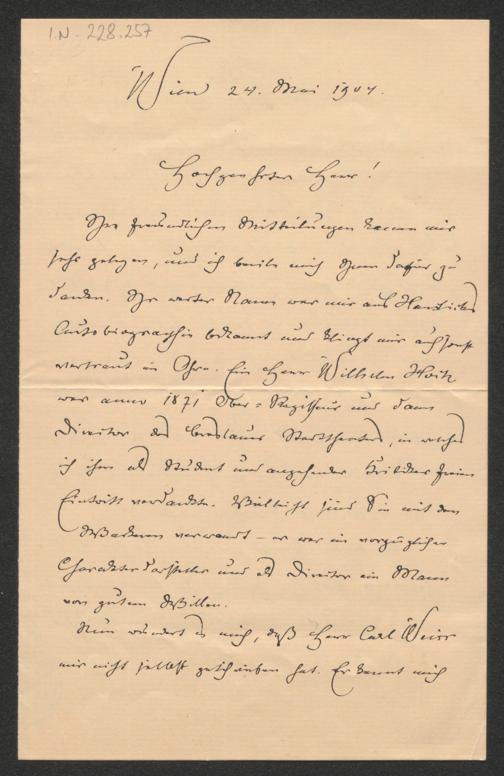 I.N. 228.257
Wien 24. Mai 1904.
Hochgeehrter Herr!
Ihre freundlichen Mitteilungen kamen mir
sehr gelegen, und ich beeile mich Ihnen dafür zu
danken. Ihr werter Name war mir aus Hanslicks
Autobiographie bekannt und klingt mir auch sonst
vertraut im Ohre. Ein Herr Wilhelm
war anno 1871 Ober-Regisseur und dann
Director des Breslauer Stadttheaters, in welches
ich ihm als Student und angehender Kritiker freien
Eintritt verdankte. Vielleicht sind Sie mit dem
Wackeren verwandt – er war ein vorzüglicher
Charakterdarsteller und als Director ein Mann
von gutem Willen.
Nun wundert es mich, daß Herr Carl
mir nicht selbst geschrieben hat. Er kennt mich